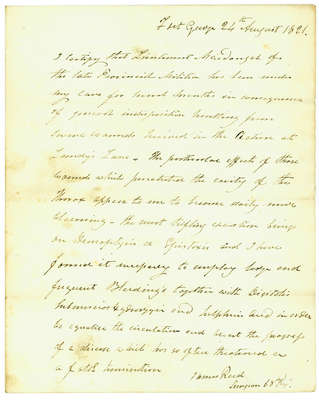 Fort George 24th August 1821.
I certify that Lieutenant MacDougal of
the late Provincial Militia has been under
my care for several months in consequence
of general indisposition resulting from
severe wounds received in the Action at
Lundy's Lane - the particular effect of those
wounds which penetrated the cavity of the
Thorax appear to me to become daily more
alarming - the most trifling exertion brings
on Hemoptysis or Epistaxis and I have
found it necessary to employ large and
frequent Bleedings together with Digitalis
and in order
to equalise the circulation and avert the progress
of a disease which has so often threatened
a fatal termination
James Reed
Surgeon